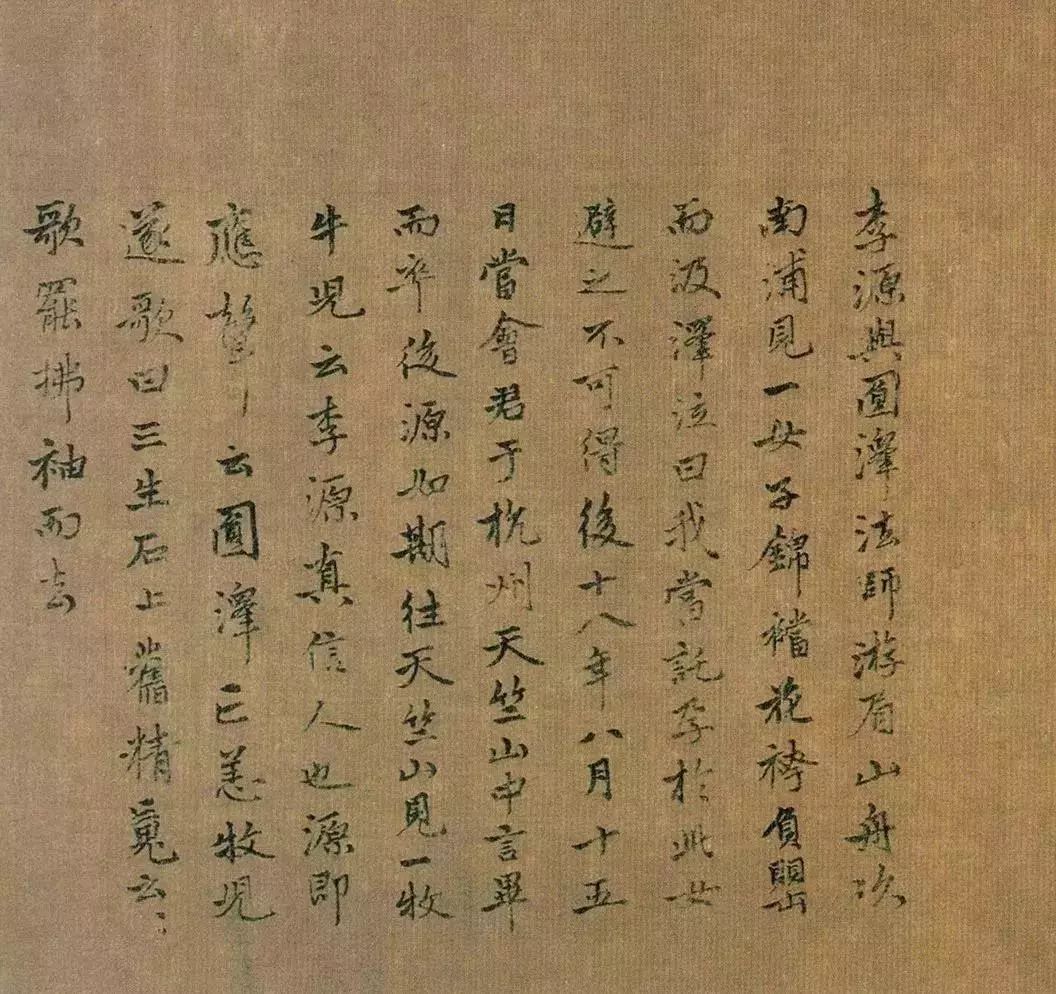 李源與圓澤法師游眉山舟次
南浦見一女子錦襠花袴負甖
而汲澤泣曰我當託孕於此女
避之不可得後十八年八月十五
日當會君于杭州天竺山中言畢
而卒後源如期往天竺山見一牧
牛児云李源真信人也源即
應聲云圓澤已恙牧児
遂歌曰三生石上舊精䰟云〻
歌罷拂袖而去